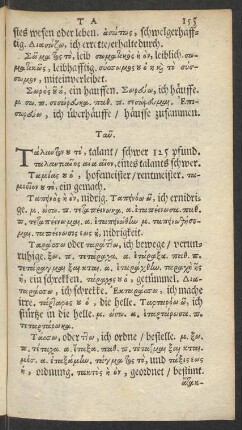 T A 155
stes wesen oder leben. ἀσώτως, schwelgerhaff-
tig. Διασώζω, ich errette/erhalte durch.
Σῶμα τος τὸ, leib. σωματικὸς ἡ ὸν, leiblich. σω-
ματικῶς, leibhafftig. σύσσωμος ου ὁ κ̀ ἡ τὸ σύσ-
σωμον, miteinverleibet.
Σωρὸς οῦ ὁ, ein hauffen. Σωρεύω, ich häuffe.
μ. σω. π. σεσώρευκα. παθ. π. σεσώρευμαι. Ἐπι-
σωρεύω, ich überhäuffe / häuffe zusammen.
Ταῦ.
Τάλαντον ου τὸ, talant/ schwer 125 pfund.
ταλαντιαῖος αία αῖον, eines talants schwer.
Ταμίας ου ὁ, hofemeister/rentmeister. τα-
μιεῖον ου τὸ, ein gemach.
Ταπεινὸς ἡ ὸν, nidrig. Ταπεινόω ῶ, ich ernidri-
ge. μ. ώσω. π. τεταπείνωκα. ἀ. ἐταπείνωσα. παθ.
π. τεταπείνωμαι. ἀ. ἐταπεινώθην. μ. ταπεινωθήσο-
μαι. ταπείνωσις εως ἡ, nidrigkeit.
Ταράσσω oder ταράττω, ich bewege / verun-
ruhige. ξω. π. τετάραχα. ἀ. ἐτάραξα. παθ. π.
τετάραγμαι ξαι κται. ἀ. ἐταράχθην. ταραχὴ ῆς
ἡ, ein schrecken. τάραχος ου ὁ, getümmel. Δια-
ταράσσω, ich schrecke. Ἐκταράσσω, ich mache
irre. τάρταρος ου ὁ, die helle. Ταρταρόω ῶ, ich
stürtze in die helle. μ. ώσω. ἀ. ἐταρτάρωσα. π.
τεταρτάρωκα.
Τάσσω, oder ττω, ich ordne / bestelle. μ. ξω.
π. τέταχα. ἀ. ἔταξα. παθ. π. τέταγμαι ξαι κται.
μέσ. ἀ. ἐταξάμην. τάγμα τος τὸ, und τάξις εως
ἡ, ordnung. τακτὸς ἡ ὸν, geordnet / bestimt.